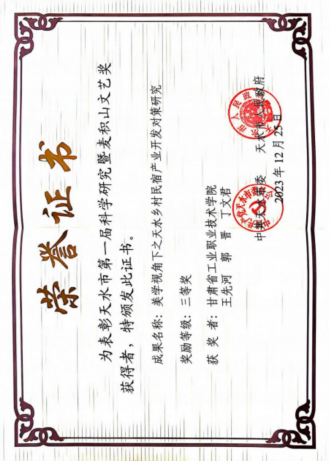 荣誉证书
为表彰天水市第一届科学研究暨麦积山文艺奖
获得者，特颁发此证书。
成果名称：美学视角下之天水乡村民宿产业开发对策研究
奖励等级：三等奖
获 奖 者：甘肃省工业职业技术学院
王先河 郭 晋 丁文君
中共天水市委 天水市人民政府
2023年12月25日